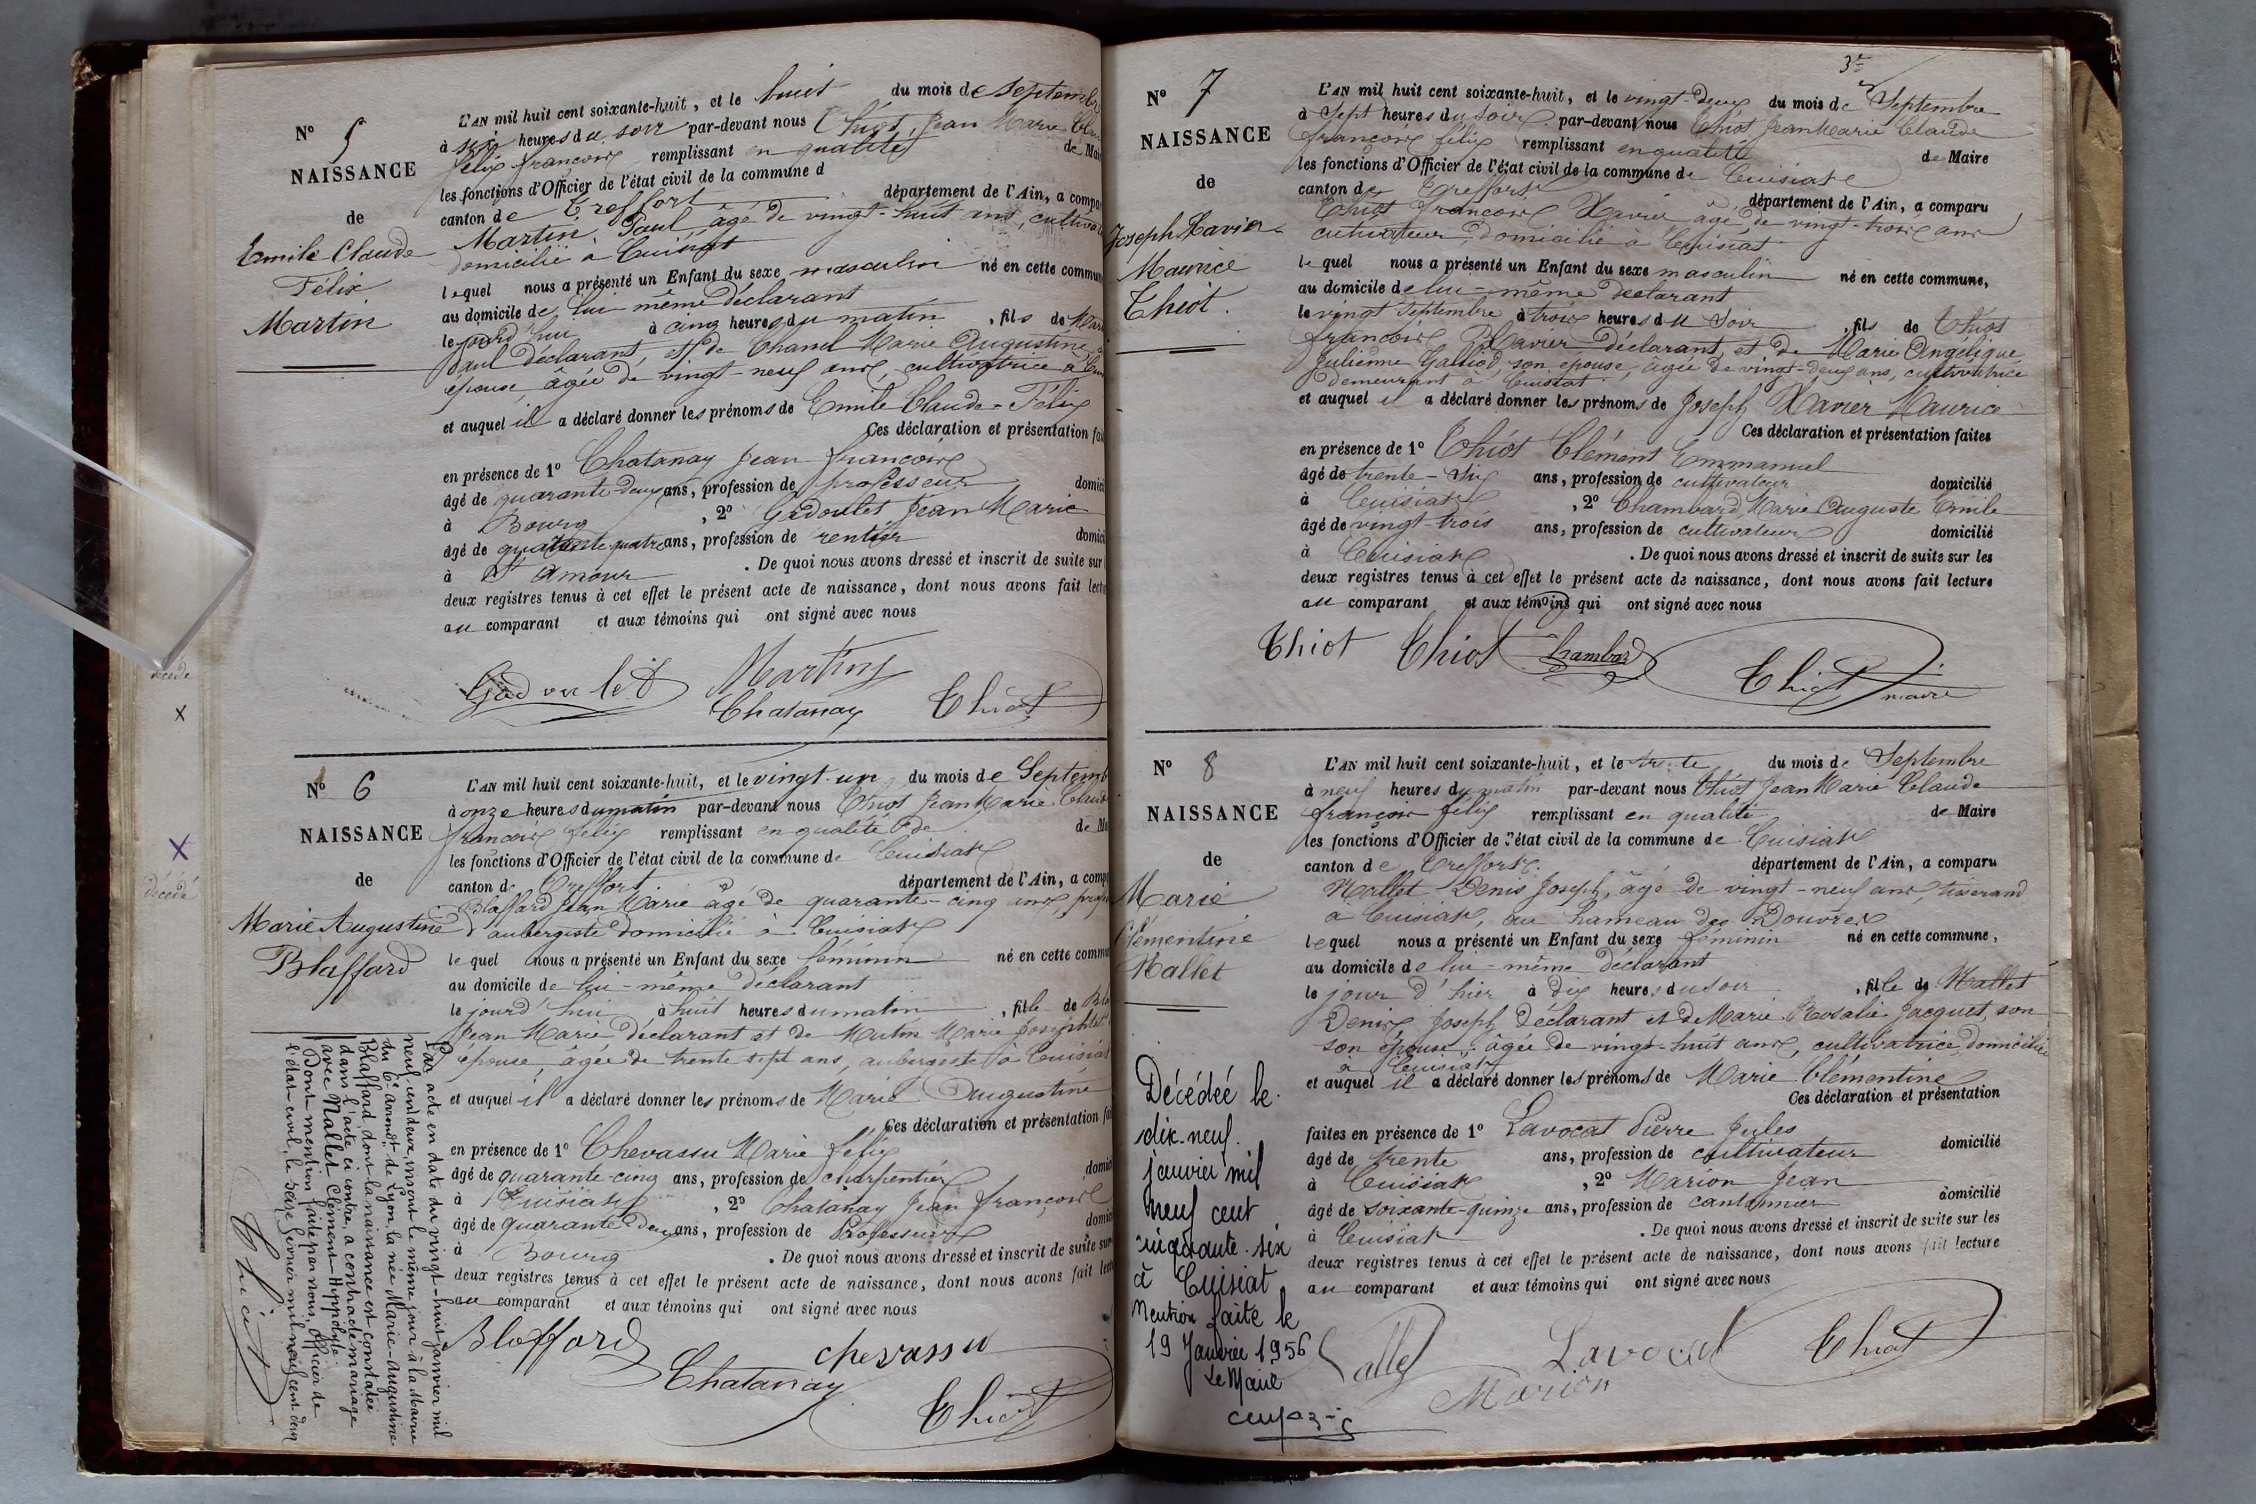 N° 5
NAISSANCE
de
Emile Claude
Félix
Martin
L'AN mil huit cent soixante-huit, et le huit du mois de Septembre
à six heures du soir par-devant nous Thiot, Jean Marie Clau
félix françois remplissant en qualité de Mai
les fonctions d'Officier de l'état civil de la commune d
canton de Treffort département de l'Ain, a compa
Martin Paul, âgé de vingt-huit ans, cultiva
domicilié à Cuisiat
lequel nous a présenté un Enfant du sexe masculin né en cette commun
au domicile de lui-même déclarant
le jourd'hui à cinq heures du matin, fils de Mar
Paul déclarant, et de Chanel Marie Augustine
épouse, âgée de vingt-neuf ans, cultivatrice à Cui
et auquel il a déclaré donner les prénoms de Emile Claude-Félix
Ces déclaration et présentation fai
en présence de 1° Chatanay Jean-françois
âgé de quarante deux ans, profession de professeur domici
à Bourg, 2° Gadoulet Jean Marie
âgé de quarante quatre ans, profession de rentier domici
à St Amour. De quoi nous avons dressé et inscrit de suite sur
deux registres tenus à cet effet le présent acte de naissance, dont nous avons fait lectu
au comparant et aux témoins qui ont signé avec nous
Gadoulet Martin
Chatanay Thiot
N° 6
NAISSANCE
de
Marie Augustine
Blaffard
L'AN mil huit cent soixante-huit, et le vingt-un du mois de Septemb
à onze heures du matin par-devant nous Thiot Jean Marie Claud
françois félix remplissant en qualité de de Ma
les fonctions d'Officier de l'état civil de la commune de Cuisiat
canton de Treffort département de l'Ain, a comp
Blaffard Jean Marie âgé de quarante-cinq ans, prof
d'aubergiste domicilié à Cuisiat
le quel nous a présenté un Enfant du sexe féminin né en cette commu
au domicile de lui-même déclarant
le jourd'hui à huit heures du matin, fille de Bla
Jean Marie déclarant et de Mutin Marie Josephte
épouse, âgée de trente sept ans, aubergiste à Cuisiat
et auquel il a déclaré donner les prénoms de Marie Augustine
Ces déclaration et présentation fa
en présence de 1° Chevassu Marie félix
âgé de quarante-cinq ans, profession de charpentier domici
à Cuisiat, 2° Chatanay Jean françois
âgé de quarante deux ans, profession de Professeur domici
à Bourg. De quoi nous avons dressé et inscrit de suite sur
deux registres tenus à cet effet le présent acte de naissance, dont nous avons fait lect
au comparant et aux témoins qui ont signé avec nous
Blaffard chevassu
Chatanay
Thiot
Par acte en date du vingt-huit janvier mil
neuf cent deux, inscrit le même jour à la Mairie
du 6e arrondt de Lyon, la née Marie-Augustine
Blaffard, dont la naissance est constatée
dans l'acte ci-contre, a contracté mariage
avec Nallet Clément-Hippolyte.
Dont mention faite par nous, officier de
l'état civil, le seize février mil neuf cent deux
Thiot
décédé
X
X
décédé
3e
N° 7
NAISSANCE
de
Joseph Xavier
Maurice
Thiot.
L'AN mil huit cent soixante-huit, et le vingt-deux du mois de Septembre
à Sept heures du Soir par-devant nous Thiot Jean Marie Claude
françois félix remplissant en qualité de Maire
les fonctions d'Officier de l'état civil de la commune de Cuisiat
canton de Treffort département de l'Ain, a comparu
Thiot françois Xavier âgé de vingt-trois ans
cultivateur, domicilié à Cuisiat
le quel nous a présenté un Enfant du sexe masculin né en cette commune,
au domicile de lui-même déclarant
le vingt Septembre à trois heures du soir, fils de Thiot
françois Xavier déclarant, et de Marie Angélique
Julienne Galliod, son épouse, âgée de vingt-deux ans, cultivatrice
demeurant à Cuisiat.
et auquel il a déclaré donner les prénoms de Joseph Xavier Maurice
Ces déclaration et présentation faites
en présence de 1° Thiot Clément Emmanuel
âgé de trente-six ans, profession de cultivateur domicilié
à Cuisiat, 2° Chambard Marie Auguste Emile
âgé de vingt-trois ans, profession de cultivateur domicilié
à Cuisiat. De quoi nous avons dressé et inscrit de suite sur les
deux registres tenus à cet effet le présent acte de naissance, dont nous avons fait lecture
au comparant et aux témoins qui ont signé avec nous
Thiot Thiot Chambard
Thiot maire
N° 8
NAISSANCE
de
Marie
Clémentine
Nallet
L'AN mil huit cent soixante-huit, et le trente du mois de Septembre
à neuf heures du matin par-devant nous Thiot Jean Marie Claude
françois félix remplissant en qualité de Maire
les fonctions d'Officier de l'état civil de la commune de Cuisiat
canton de Treffort département de l'Ain, a comparu
Nallet Denis Joseph, âgé de vingt-neuf ans, tisserand
à Cuisiat, au hameau des Douvres
lequel nous a présenté un Enfant du sexe féminin né en cette commune,
au domicile de lui-même déclarant
le jour d'hier à dix heures du soir, fille de Nallet
Denis Joseph déclarant et de Marie Rosalie Jacquet, son
son épouse, âgée de vingt-huit ans, cultivatrice domiciliée
à Cuisiat
et auquel il a déclaré donner les prénoms de Marie Clémentine
Ces déclaration et présentation
faites en présence de 1° Lavocat Pierre Jules
âgé de trente ans, profession de cultivateur domicilié
à Cuisiat, 2° Marion Jean
âgé de soixante-quinze ans, profession de cantonnier domicilié
à Cuisiat. De quoi nous avons dressé et inscrit de suite sur les
deux registres tenus à cet effet le présent acte de naissance, dont nous avons fait lecture
au comparant et aux témoins qui ont signé avec nous
Nallet Lavocat Thiot
Marion
Décédée le
dix-neuf
janvier mil
neuf cent
cinquante-six
à Cuisiat
Mention faite le
19 Janvier 1956
Le Maire